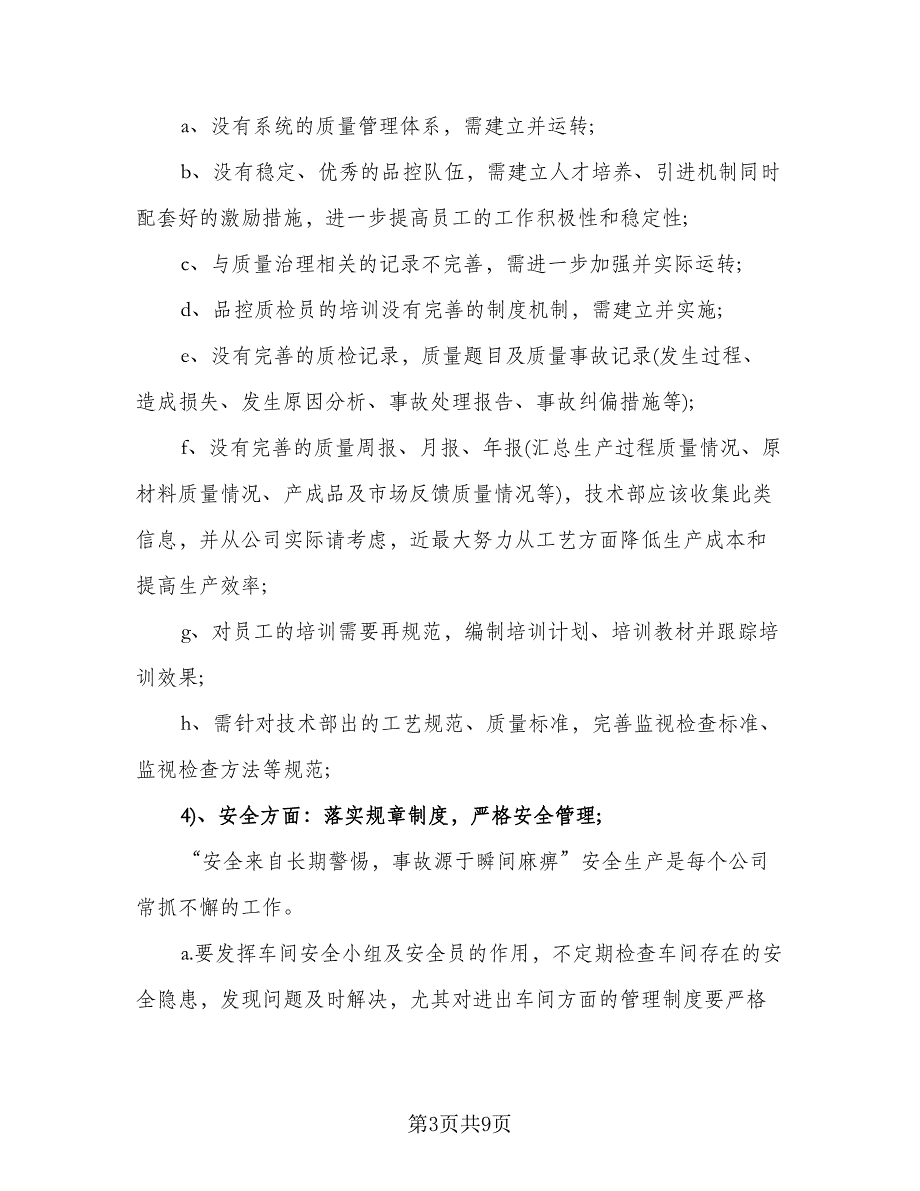 a、没有系统的质量管理体系，需建立并运转;
b、没有稳定、优秀的品控队伍，需建立人才培养、引进机制同时
配套好的激励措施，进一步提高员工的工作积极性和稳定性;
c、与质量治理相关的记录不完善，需进一步加强并实际运转;
d、品控质检员的培训没有完善的制度机制，需建立并实施;
e、没有完善的质检记录，质量题目及质量事故记录(发生过程、
造成损失、发生原因分析、事故处理报告、事故纠偏措施等);
f、没有完善的质量周报、月报、年报(汇总生产过程质量情况、原
材料质量情况、产成品及市场反馈质量情况等)，技术部应该收集此类
信息，并从公司实际请考虑，近最大努力从工艺方面降低生产成本和
提高生产效率;
g、对员工的培训需要再规范，编制培训计划、培训教材并跟踪培
训效果;
h、需针对技术部出的工艺规范、质量标准，完善监视检查标准、
监视检查方法等规范;
4)、安全方面：落实规章制度，严格安全管理;
“安全来自长期警惕，事故源于瞬间麻痹”安全生产是每个公司
常抓不懈的工作。
a.要发挥车间安全小组及安全员的作用，不定期检查车间存在的安
全隐患，发现问题及时解决，尤其对进出车间方面的管理制度要严格
第3页共9页